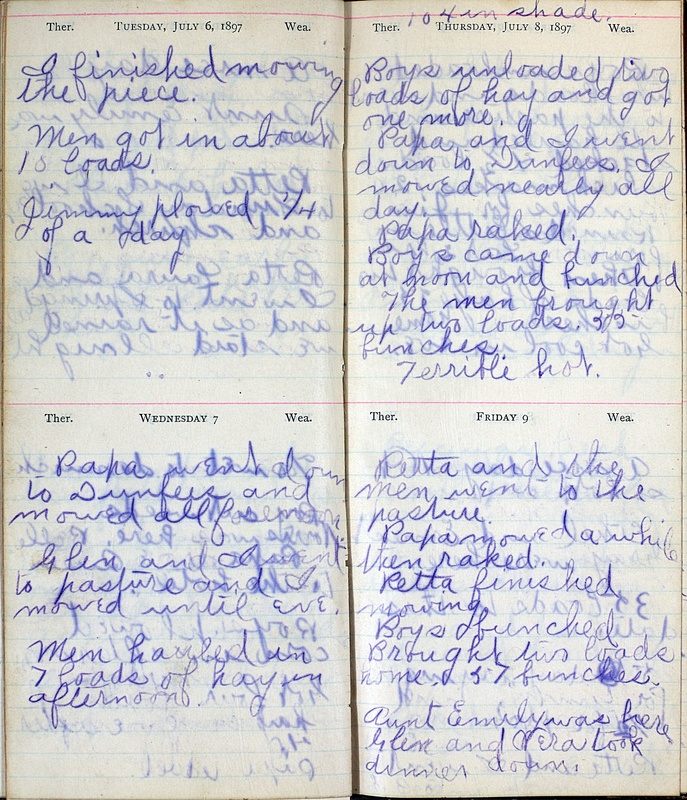 Ther. TUESDAY, JULY 6, 1897 Wea.
I finished mowing
the piece.
Men got in about
10 loads.
Jimmy plowed 3/4
of a day
Ther. WEDNESDAY 7 Wea.
Papa went down
to Dunfees and
mowed all forenoon.
Glen and I went
to pasture and I
mowed until eve.
Men hauled in
7 loads of hay in
afternoon.
104 in shade.
Ther. THURSDAY, JULY 8, 1897 Wea.
Boys unloaded two
loads of hay and got
one more.
Papa and I went
down to Dunfees. I
mowed nearly all
day.
Papa raked.
Boys came down
at noon and bunched
The men brought
up two loads. 35
bunches.
Terrible hot.
Ther. FRIDAY 9 Wea.
Retta and the
men went to the
pasture.
Papa mowed a while
then raked.
Retta finished
mowing.
Boys bunched
Brought two loads
home. 37 bunches.
Aunt Emily was here.
Glen and Vera took
dinner down.